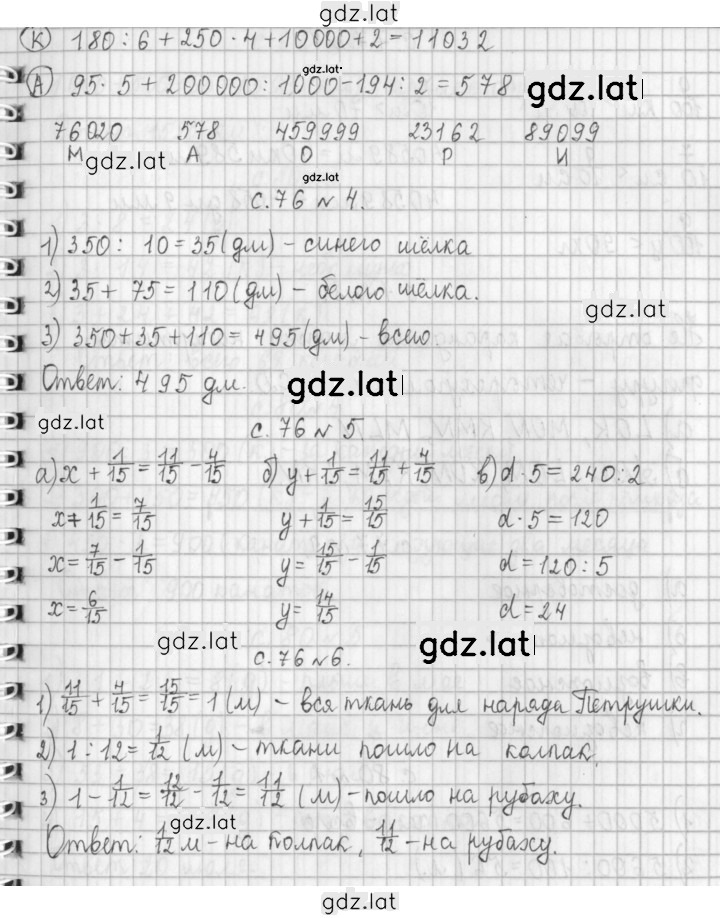 gdz.lat
(К) 180 : 6 + 250 · 4 + 10000 + 2 = 11032
gdz.lat
(А) 95 · 5 + 200000 : 1000 - 194 : 2 = 578 gdz.lat
76020 578 459999 23162 89099
М gdz.lat А О Р И
gdz.lat
с. 76 № 4.
1) 350 : 10 = 35 (дм) - синего шёлка
2) 35 + 75 = 110 (дм) - белого шёлка.
gdz.lat
3) 350 + 35 + 110 = 495 (дм) - всего
Ответ: 495 дм. gdz.lat
gdz.lat с. 76 № 5
а) x + 1/15 = 11/15 - 4/15 б) y + 1/15 = 11/15 + 4/15 в) d · 5 = 240 : 2
x + 1/15 = 7/15 y + 1/15 = 15/15 d · 5 = 120
x = 7/15 - 1/15 y = 15/15 - 1/15 d = 120 : 5
x = 6/15 y = 14/15 d = 24
gdz.lat gdz.lat
с. 76 № 6.
1) 11/15 + 4/15 = 15/15 = 1 (м) - вся ткань для наряда Петрушки.
2) 1 : 12 = 1/12 (м) - ткани пошло на колпак.
3) 1 - 1/12 = 12/12 - 1/12 = 11/12 (м) - пошло на рубаху.
gdz.lat
Ответ: 1/12 м - на колпак, 11/12 - на рубаху.
gdz.lat